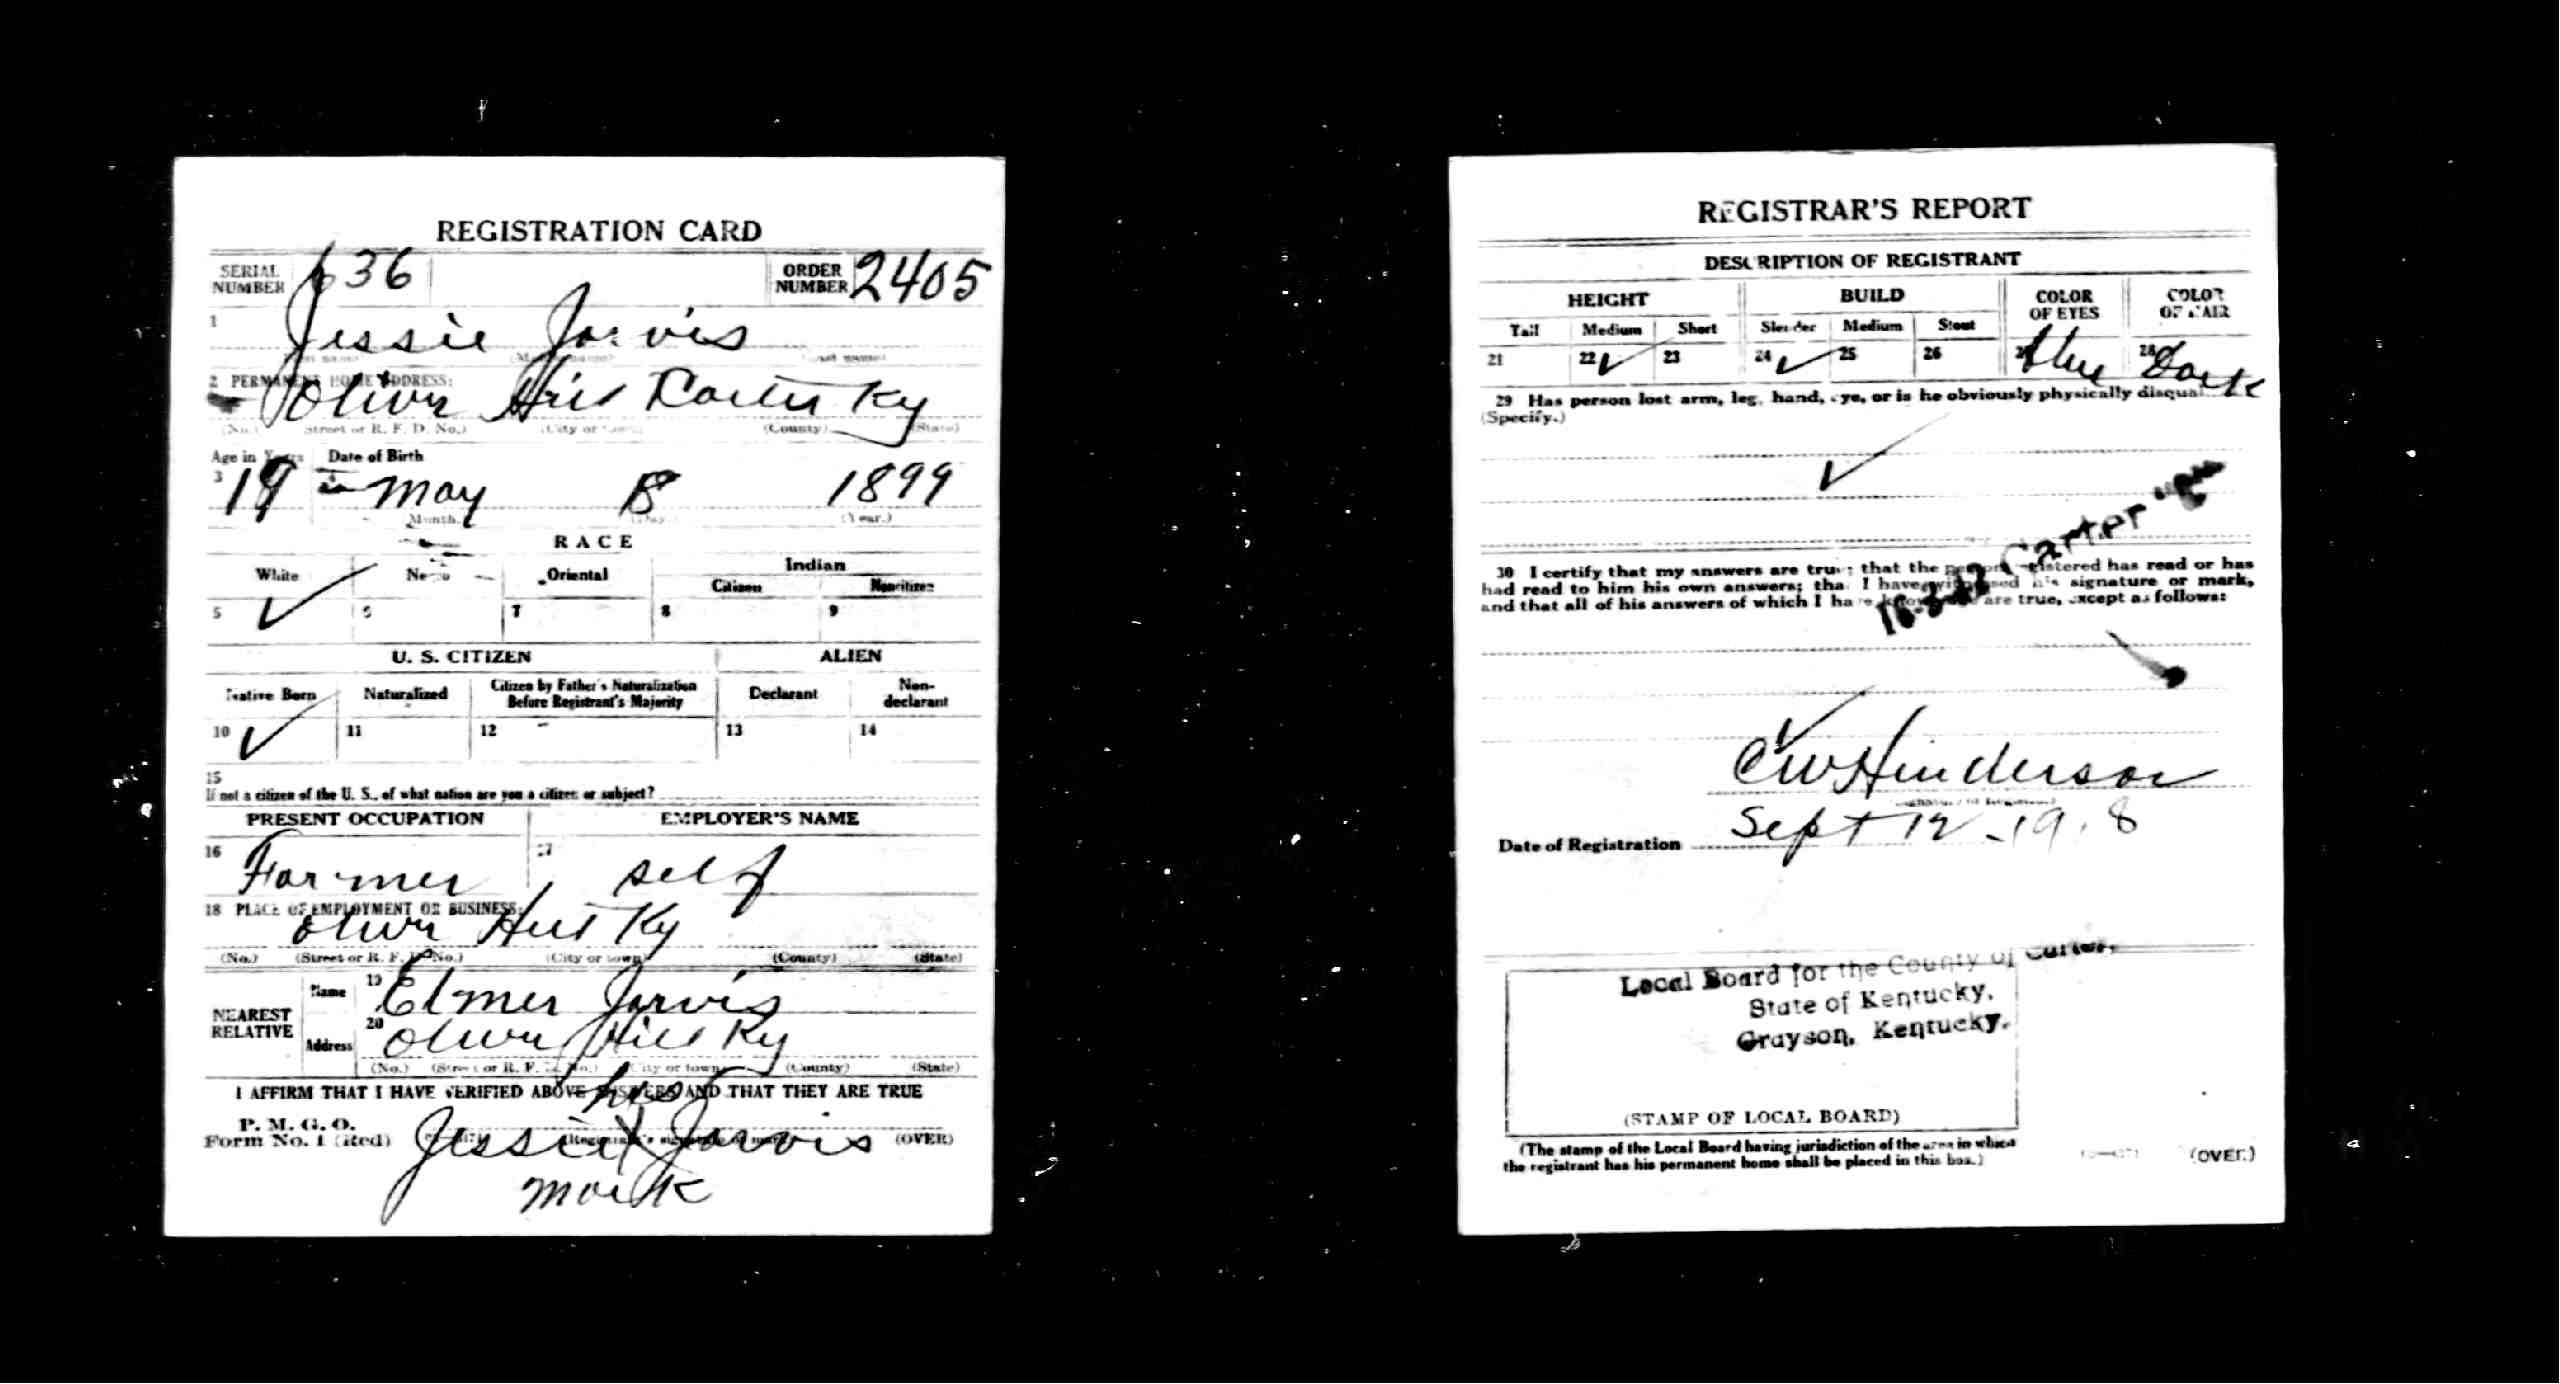 REGISTRATION CARD
SERIAL NUMBER 636 ORDER NUMBER 2405
1 Jessie Jarvis
2 PERMANENT HOME ADDRESS:
Olive Hill Carter Ky
(No.) Street or R. F. D. No.) (City or town) (County) (State)
Age in Years Date of Birth
3 19 May 1899
Month. (Day.) (Year.)
RACE
White Negro Oriental Indian
Citizen Noncitizen
5 ✓ 6 7 8 9
U. S. CITIZEN ALIEN
Native Born Naturalized Citizen by Father's Naturalization Before Registrant's Majority Declarant Non-declarant
10 ✓ 11 12 13 14
15
If not a citizen of the U. S., of what nation are you a citizen or subject?
PRESENT OCCUPATION EMPLOYER'S NAME
16 Farmer 17 self
18 PLACE OF EMPLOYMENT OR BUSINESS:
Olive Hill Ky
(No.) (Street or R. F. D. No.) (City or town) (County) (State)
NEAREST RELATIVE
Name 19 Elmer Jarvis
Address 20 Olive Hill Ky
(No.) (Street or R. F. D. No.) (City or town) (County) (State)
I AFFIRM THAT I HAVE VERIFIED ABOVE ANSWERS AND THAT THEY ARE TRUE
his
P. M. G. O.
Form No. 1 (Red) Jessie X Jarvis (OVER)
(Registrant's signature or mark)
mark
REGISTRAR'S REPORT
DESCRIPTION OF REGISTRANT
HEIGHT BUILD COLOR OF EYES COLOR OF HAIR
Tall Medium Short Slender Medium Stout
21 22 ✓ 23 24 ✓ 25 26 27 blue 28 Dark
29 Has person lost arm, leg, hand, eye, or is he obviously physically disqual
(Specify.)
✓
Carter
30 I certify that my answers are true; that the person registered has read or has
had read to him his own answers; that I have witnessed his signature or mark,
and that all of his answers of which I have knowledge are true, except as follows:
✓
C W Hinderson
(Signature of Registrar)
Date of Registration Sept 12 - 1918
Local Board for the County of Carter,
State of Kentucky,
Grayson, Kentucky.
(STAMP OF LOCAL BOARD)
(The stamp of the Local Board having jurisdiction of the area in which
the registrant has his permanent home shall be placed in this box.)
(OVER)